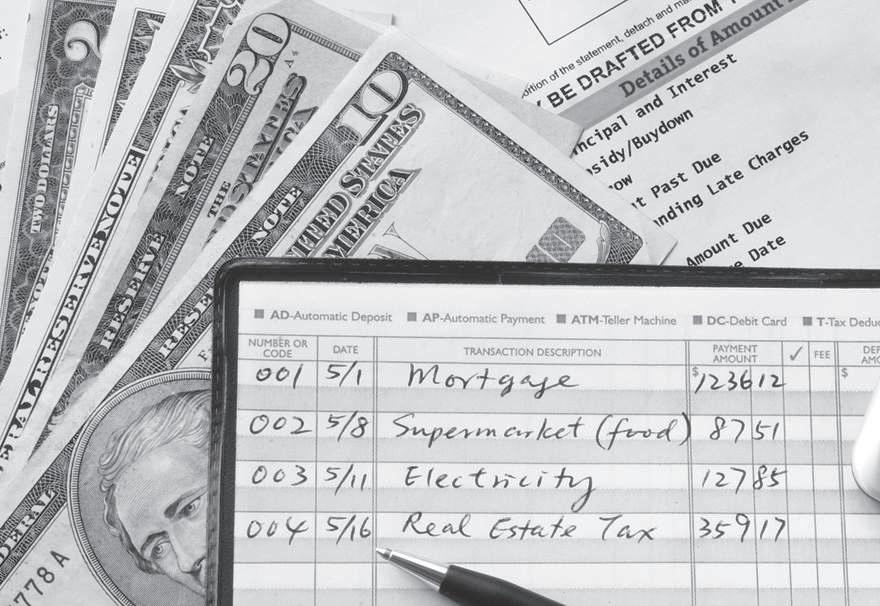 20
10
TWO DOLLARS
THE
UNITED STATES
AMERICA
NOTE
NOTE
RESERVE
RESERVE NOTE
778 A
ition of the statement, detach and ma
BE DRAFTED FROM
Details of Amount
ncipal and Interest
sidy/Buydown
ow
t Past Due
nding Late Charges
Amount Due
e Date
■ AD-Automatic Deposit ■ AP-Automatic Payment ■ ATM-Teller Machine ■ DC-Debit Card ■ T-Tax Deduc
NUMBER OR CODE DATE TRANSACTION DESCRIPTION PAYMENT AMOUNT ✓ FEE DEP AMO
001 5/1 Mortgage $1236 12 $
002 5/8 Supermarket (food) 87 51
003 5/11 Electricity 127 85
004 5/16 Real Estate Tax 359 17